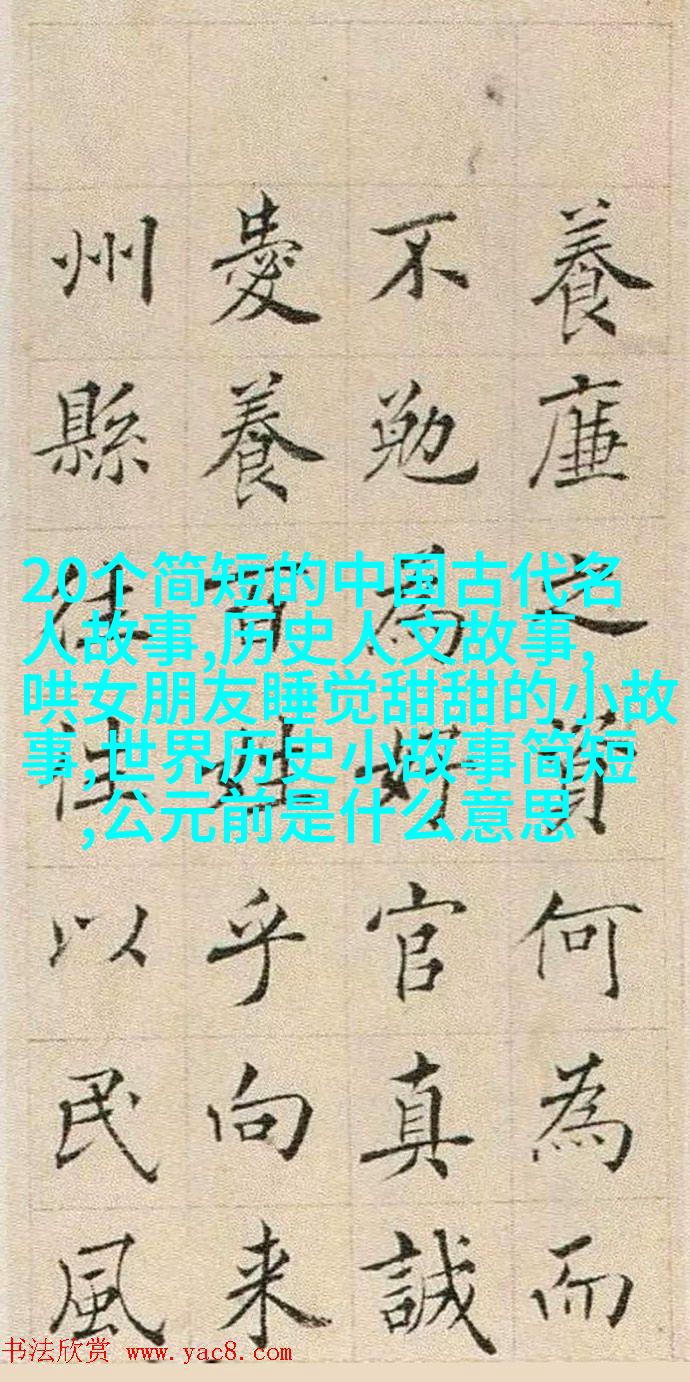 養廉之資何為而
不勉為好官真誠
愛養百姓乎向来
州縣往往以民風
20个简短的中国古代名
人故事,历史人文故事,
哄女朋友睡觉甜甜的小故
事,世界历史小故事简短
,公元前是什么意思
书法欣赏 www.yac8.com